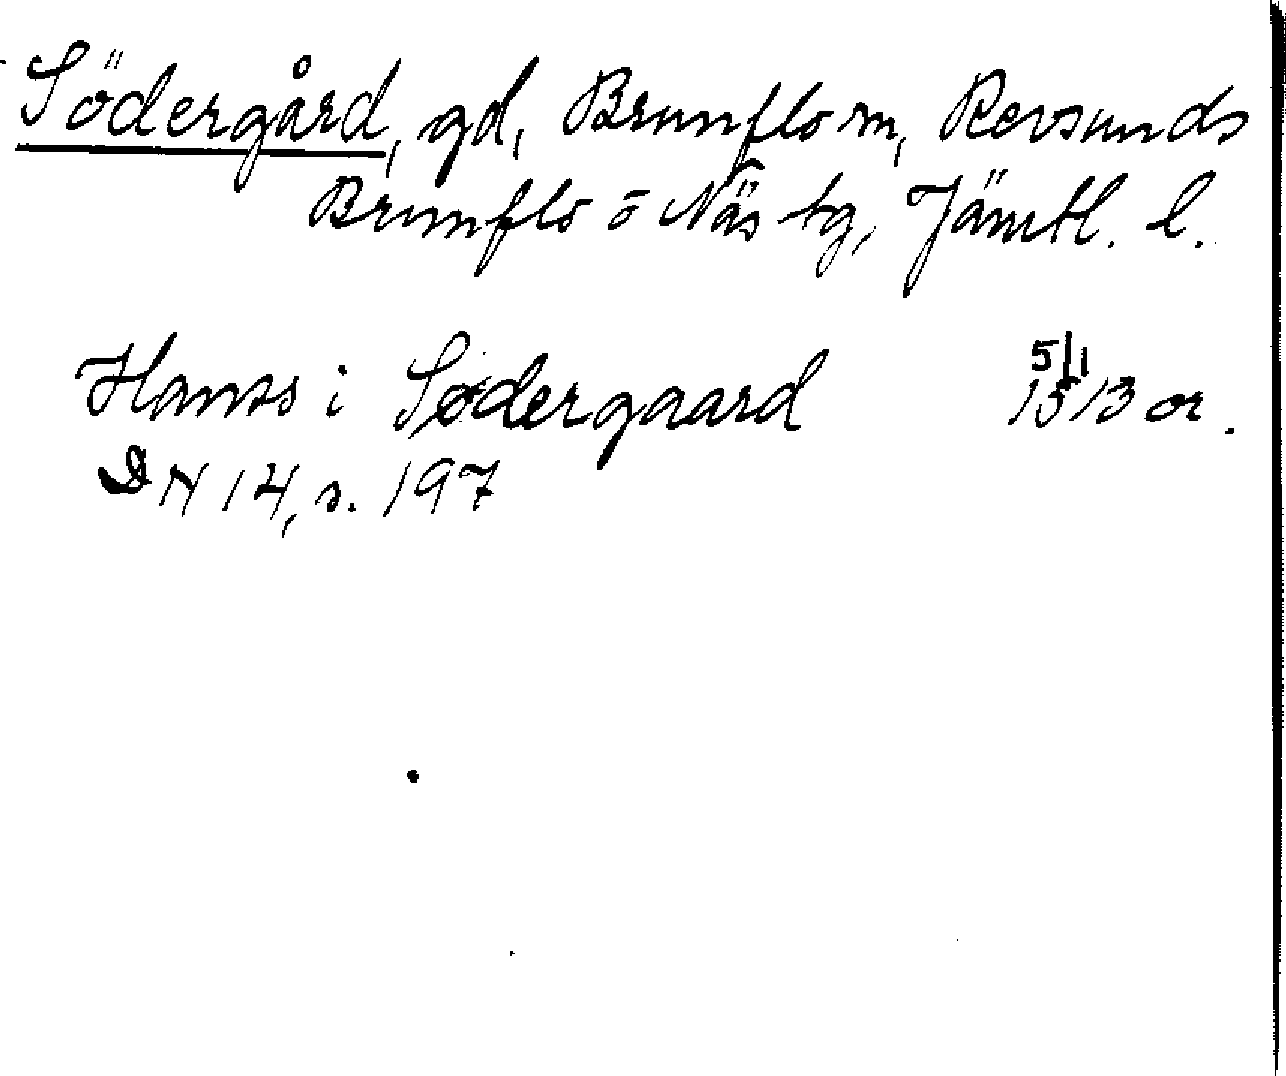 Södergård, gd, Brunflo sn, Revsunds
Brunflo o Näs tg, Jämtl. l.
Hanss i Sødergaard 5/1 1513 or.
DN 14, s. 197